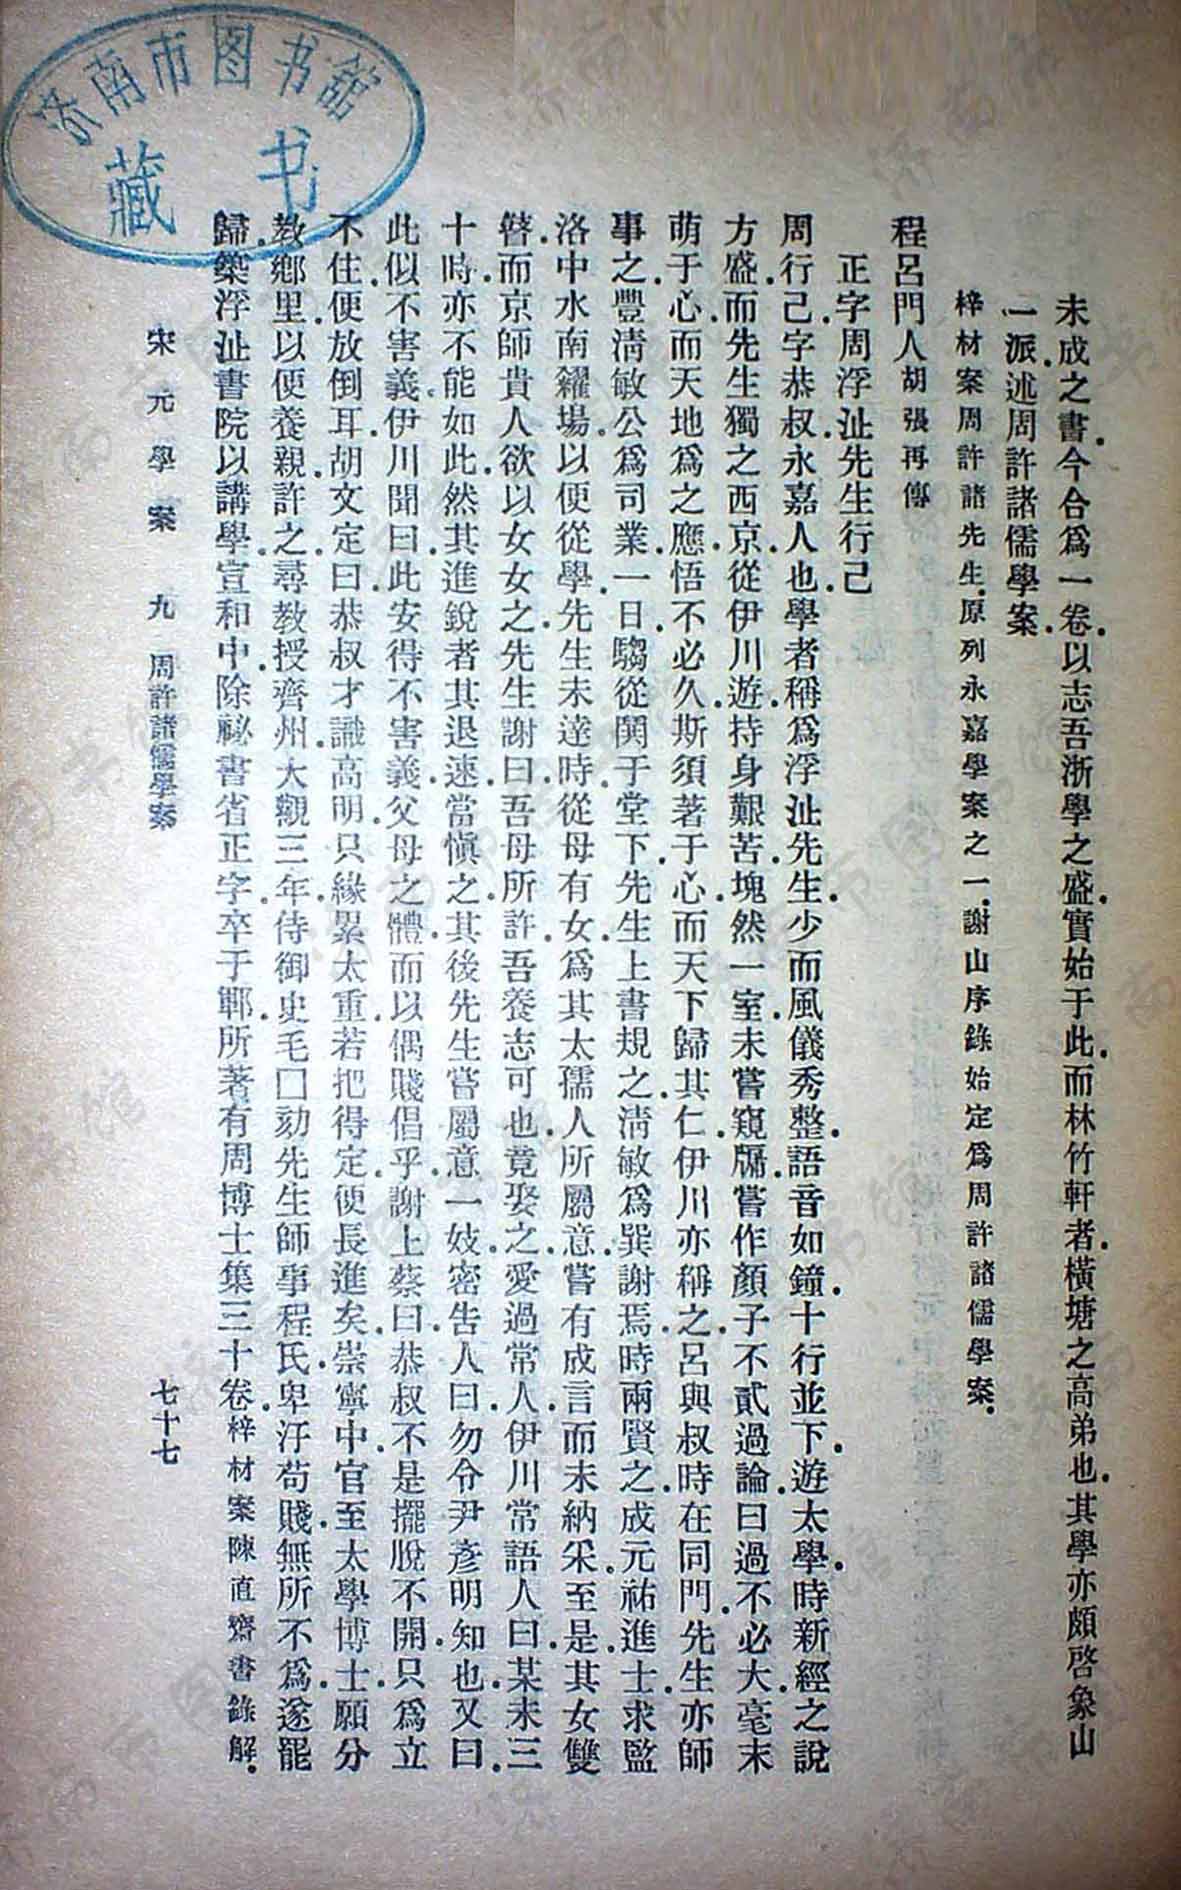 济南市图书馆
藏书
未成之書.今合爲一卷.以志吾浙學之盛.實始于此.而林竹軒者.橫塘之高弟也.其學亦頗啓象山
一派.述周許諸儒學案.
梓材案周許諸先生.原列永嘉學案之一.謝山序錄始定爲周許諸儒學案.
程呂門人胡張再傳
正字周浮沚先生行己
周行己.字恭叔.永嘉人也.學者稱爲浮沚先生.少而風儀秀整.語音如鐘.十行並下.遊太學.時新經之說
方盛.而先生獨之西京.從伊川遊.持身艱苦.塊然一室.未嘗窺牖.嘗作顏子不貳過論曰.過不必大.毫末
萌于心.而天地爲之應.悟不必久.斯須著于心.而天下歸其仁.伊川亦稱之.呂與叔時在同門.先生亦師
事之.豐淸敏公爲司業.一日.騶從閧于堂下.先生上書規之.淸敏爲巽謝焉.時兩賢之.成元祐進士.求監
洛中水南糴場.以便從學.先生未達時.從母有女.爲其太孺人所屬意.嘗有成言而未納采.至是.其女雙
瞽.而京師貴人欲以女女之.先生謝曰.吾母所許.吾養志可也.竟娶之.愛過常人.伊川常語人曰.某未三
十時.亦不能如此.然其進銳者其退速.當愼之.其後先生嘗屬意一妓.密告人曰.勿令尹彥明知也.又曰.
此似不害義.伊川聞曰.此安得不害義.父母之體.而以偶賤倡乎.謝上蔡曰.恭叔不是擺脫不開.只爲立
不住.便放倒耳.胡文定曰.恭叔才識高明.只緣累太重.若把得定.便長進矣.崇寧中.官至太學博士.願分
敎鄕里.以便養親.許之.尋敎授齊州.大觀三年.侍御史毛囗劾先生師事程氏.卑汙苟賤.無所不爲.遂罷
歸.築浮沚書院以講學.宣和中.除祕書省正字.卒于鄆.所著有周博士集三十卷.梓材案陳直齋書錄解.
宋元學案 九 周許諸儒學案
七十七